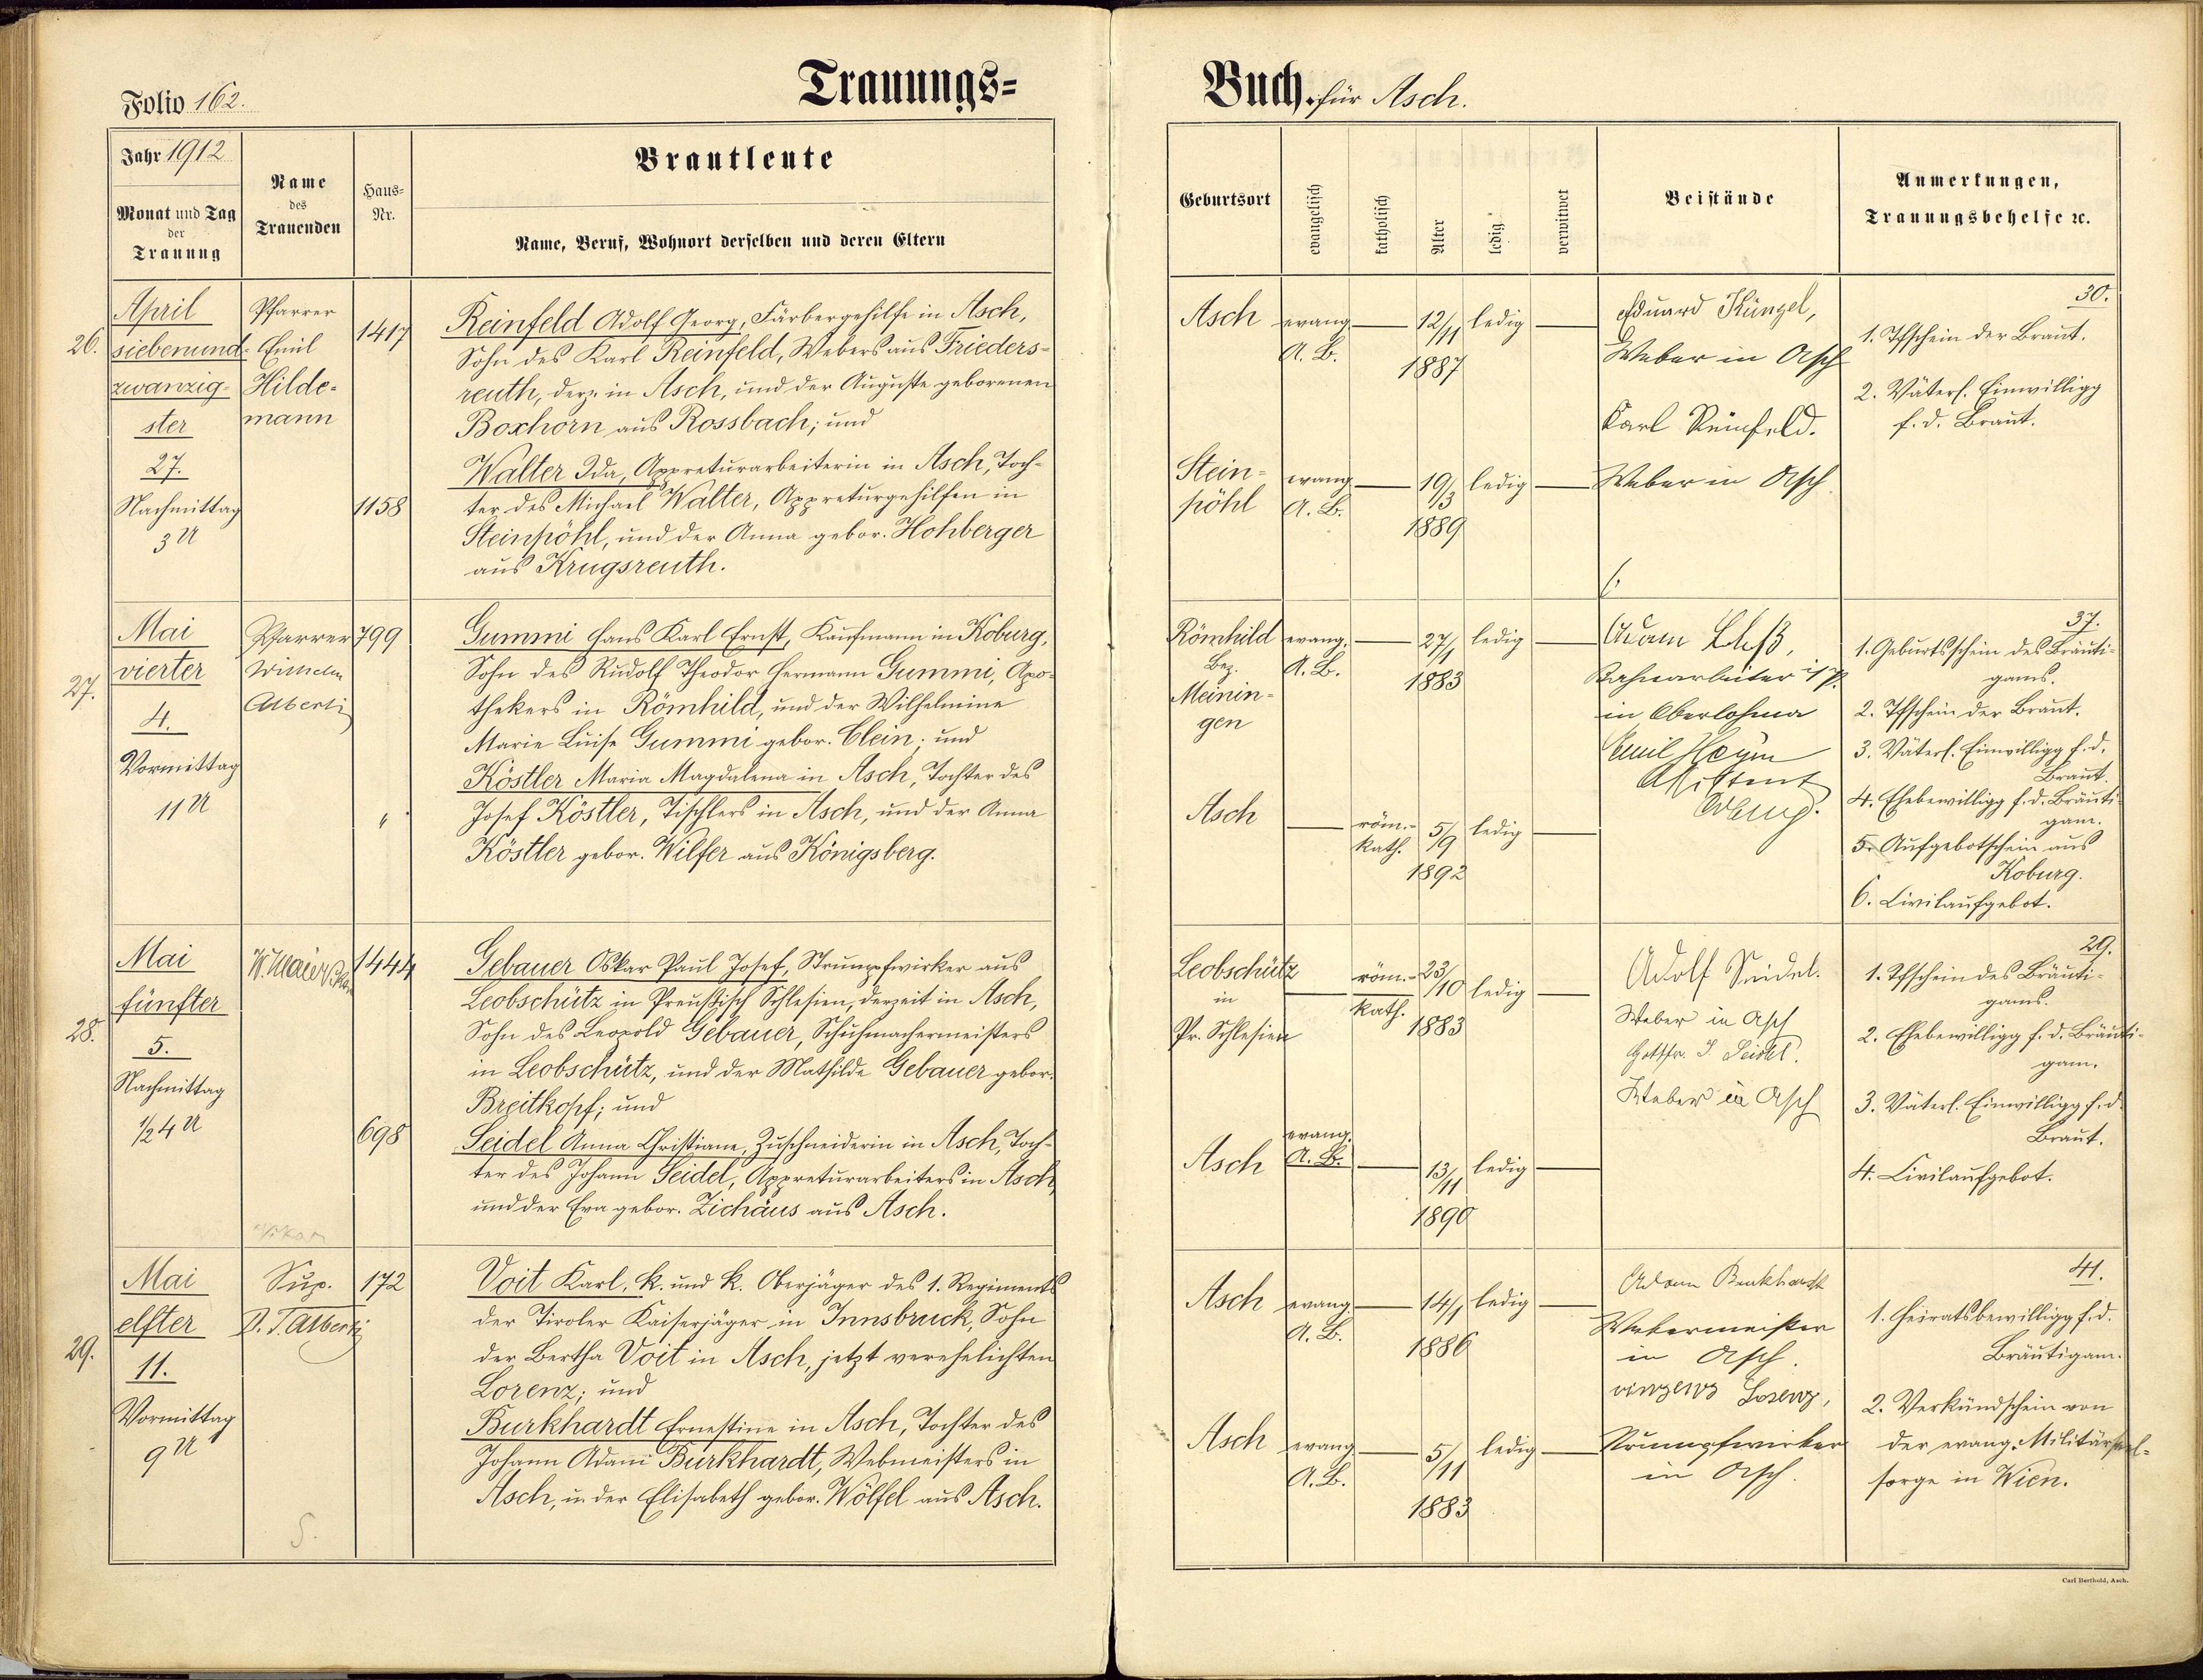 Folio 162.
Trauungs=
Jahr 1912
Monat und Tag
der
Trauung
Name
des
Trauenden
Haus=
Nr.
Brautleute
Name, Beruf, Wohnort derselben und deren Eltern
26.
April
siebenund-
zwanzig-
ster
27.
Nachmittag
3 U
Pfarrer
Emil
Hilde-
mann
1417
1158
Reinfeld Adolf Georg, Färbergehilfe in Asch,
Sohn des Karl Reinfeld, Webers aus Frieders-
reuth, derz. in Asch, und der Auguste geborenen
Boxhorn aus Rossbach; und
Walter Ida, Appreturarbeiterin in Asch, Toch-
ter des Michael Walter, Appreturgehilfen in
Steinpöhl, und der Anna gebor. Hohberger
aus Krugsreuth.
27.
Mai
vierter
4.
Vormittag
11 U
Pfarrer
Wilhelm
Alberti
799
"
Gummi Hans Karl Ernst, Kaufmann in Koburg,
Sohn des Rudolf Theodor Hermann Gummi, Apo-
thekers in Römhild, und der Wilhelmine
Marie Luise Gummi gebor. Clein; und
Köstler Maria Magdalena in Asch, Tochter des
Josef Köstler, Tischlers in Asch, und der Anna
Köstler gebor. Wilfer aus Königsberg.
28.
Mai
fünfter
5.
Nachmittag
1/2 4 U
W. Maier
Vikar
1444
698
Gebauer Oskar Paul Josef, Strumpfwirker aus
Leobschütz in Preußisch Schlesien, derzeit in Asch,
Sohn des Leopold Gebauer, Schuhmachermeisters
in Leobschütz, und der Mathilde Gebauer gebor.
Breitkopf; und
Seidel Anna Christiane, Zuschneiderin in Asch, Toch-
ter des Johann Seidel, Appreturarbeiters in Asch,
und der Eva gebor. Zichäus aus Asch.
29.
Mai
elfter
11.
Vormittag
9 U
Sup.
D. T. Alberti
S.
172
Voit Karl, k. und k. Oberjäger des 1. Regiments
der Tiroler Kaiserjäger in Innsbruck, Sohn
der Bertha Voit in Asch, jetzt verehelichten
Lorenz; und
Burkhardt Ernestine in Asch, Tochter des
Johann Adam Burkhardt, Webmeisters in
Asch, u. der Elisabeth gebor. Wölfel aus Asch.
Buch. für Asch.
Geburtsort
evangelisch
katholisch
Alter
ledig
verwitwet
Beistände
Anmerkungen,
Trauungsbehelfe ꝛc.
Asch
evang.
A. B.
12/11
1887
ledig
Eduard Künzel,
Weber in Asch
Karl Reinfeld.
Weber in Asch
30.
1. Tfschein der Braut.
2. Väterl. Einwilligg
f. d. Braut.
Stein-
pöhl
evang
A. B.
19/3
1889
ledig
Römhild
Bez.
Meinin-
gen
evang.
A. B.
27/1
1883
ledig
Adam
Bahnarbeiter i/P.
in Oberlohma
Emil Heym
Assistent
37.
1. Geburtsschein des Bräuti-
gams.
2. Tfschein der Braut.
3. Väterl. Einwilligg f. d.
Braut.
4. Ehebewilligg f. d. Bräuti-
gam.
5. Aufgebotschein aus
Koburg.
6. Civilaufgebot.
Asch
röm.-
kath.
5/9
1892
ledig
Leobschütz
in
Pr. Schlesien
röm.-
kath.
23/10
1883
ledig
Adolf Seidel.
Weber in Asch
Gottfr. J. Seidel.
Weber in Asch
29.
1. Tfschein des Bräuti-
gams.
2. Ehebewilligg f. d. Bräuti-
gam.
3. Väterl. Einwilligg f. d.
Braut.
4. Civilaufgebot.
Asch
evang.
A. B.
13/11
1890
ledig
Asch
evang
A. B.
14/1
1886
ledig
Adam Burkhardt
Webermeister
in Asch.
Vinzenz Lorenz,
Strumpfwirker
in Asch.
41.
1. Heiratsbewilligg f. d.
Bräutigam.
2. Verkündschein von
der evang. Militärseel-
sorge in Wien.
Asch
evang
A. B.
5/11
1883
ledig
Carl Berthold, Asch.